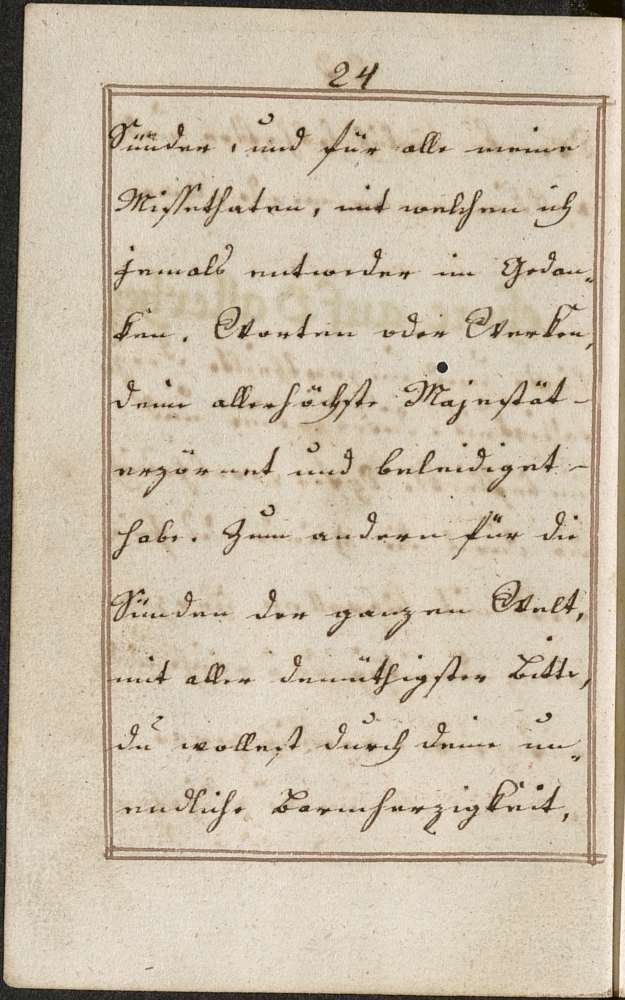 24
Sünden, und für alle meine
Missethaten, mit welchen ich
jemals entweder in Gedan„
ken, Worten oder Werken,
deine allerhöchste Majestät
erzörnet und beleidiget
habe. Zum andern für die
Sünden der ganzen Welt,
mit aller demüthigster Bitte,
du wollest durch deine un„
endliche Barmherzigkeit,